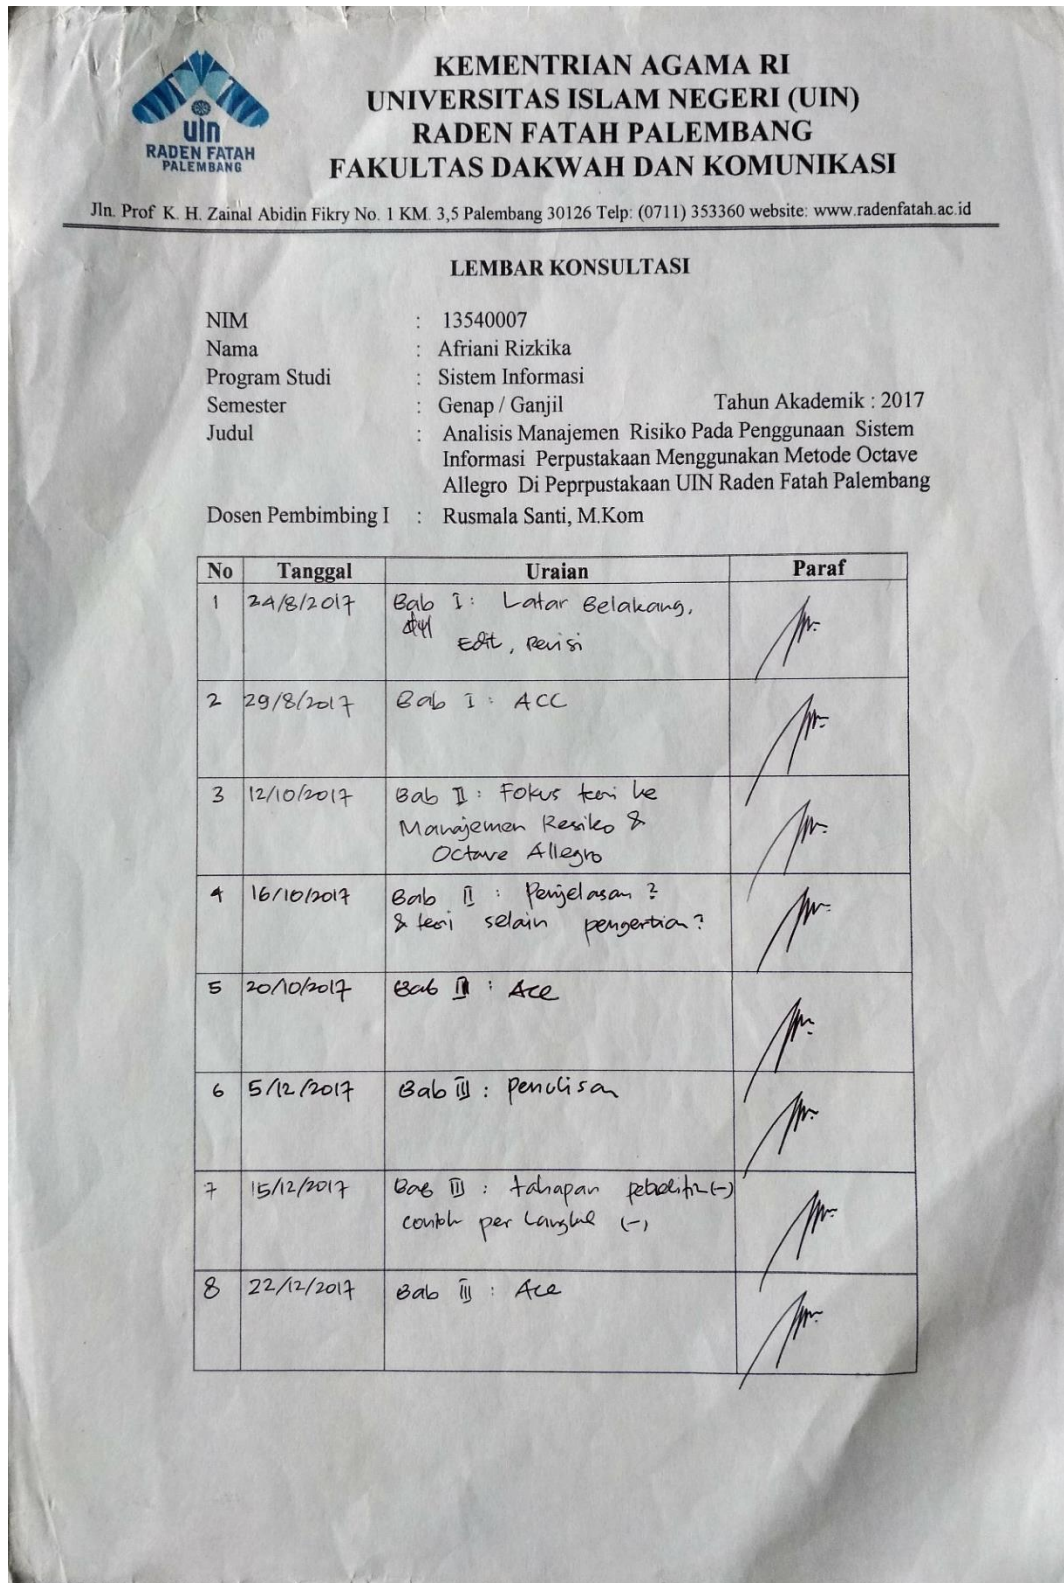 uin
RADEN FATAH
PALEMBANG
KEMENTRIAN AGAMA RI
UNIVERSITAS ISLAM NEGERI (UIN)
RADEN FATAH PALEMBANG
FAKULTAS DAKWAH DAN KOMUNIKASI
Jln. Prof K. H. Zainal Abidin Fikry No. 1 KM. 3,5 Palembang 30126 Telp: (0711) 353360 website: www.radenfatah.ac.id
LEMBAR KONSULTASI
NIM : 13540007
Nama : Afriani Rizkika
Program Studi : Sistem Informasi
Semester : Genap / Ganjil Tahun Akademik : 2017
Judul : Analisis Manajemen Risiko Pada Penggunaan Sistem
Informasi Perpustakaan Menggunakan Metode Octave
Allegro Di Peprpustakaan UIN Raden Fatah Palembang
Dosen Pembimbing I : Rusmala Santi, M.Kom
No Tanggal Uraian Paraf
1 24/8/2017 Bab I : Latar Belakang,
Edit, Revisi
2 29/8/2017 Bab I : ACC
3 12/10/2017 Bab II : Fokus teori ke
Manajemen Resiko &
Octave Allegro
4 16/10/2017 Bab II : Penjelasan ?
& teori selain pengertian ?
5 20/10/2017 Bab II : Acc
6 5/12/2017 Bab III : penulisan
7 15/12/2017 Bab III : tahapan (-)
contoh per (-)
8 22/12/2017 Bab III : Acc